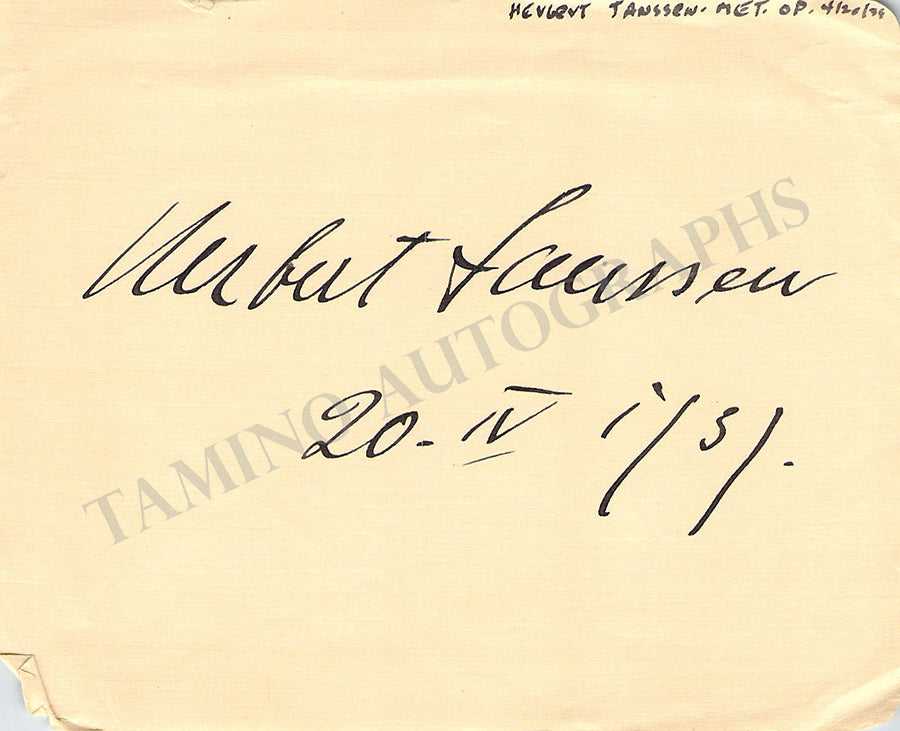 HERBERT JANSSEN. MET. OP. 4/20/39
Herbert Janssen
20. IV 1939.
TAMINO AUTOGRAPHS